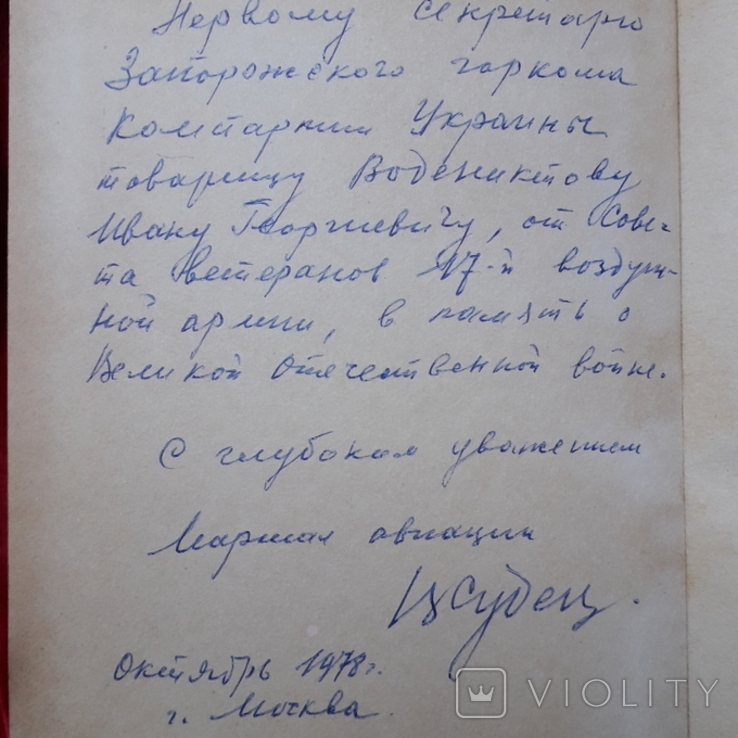 Первому секретарю
Запорожского горкома
Компартии Украины
товарищу Воденик­тову
Ивану Георгиевичу, от Сове-
та ветеранов 17-й воздуш-
ной армии, в память о
Великой Отечественной войне.
С глубоким уважением
Маршал авиации
Судец.
Октябрь 1978 г.
г. Москва.
VIOLITY